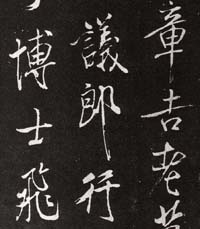 章吉老
議郎行
博士飛